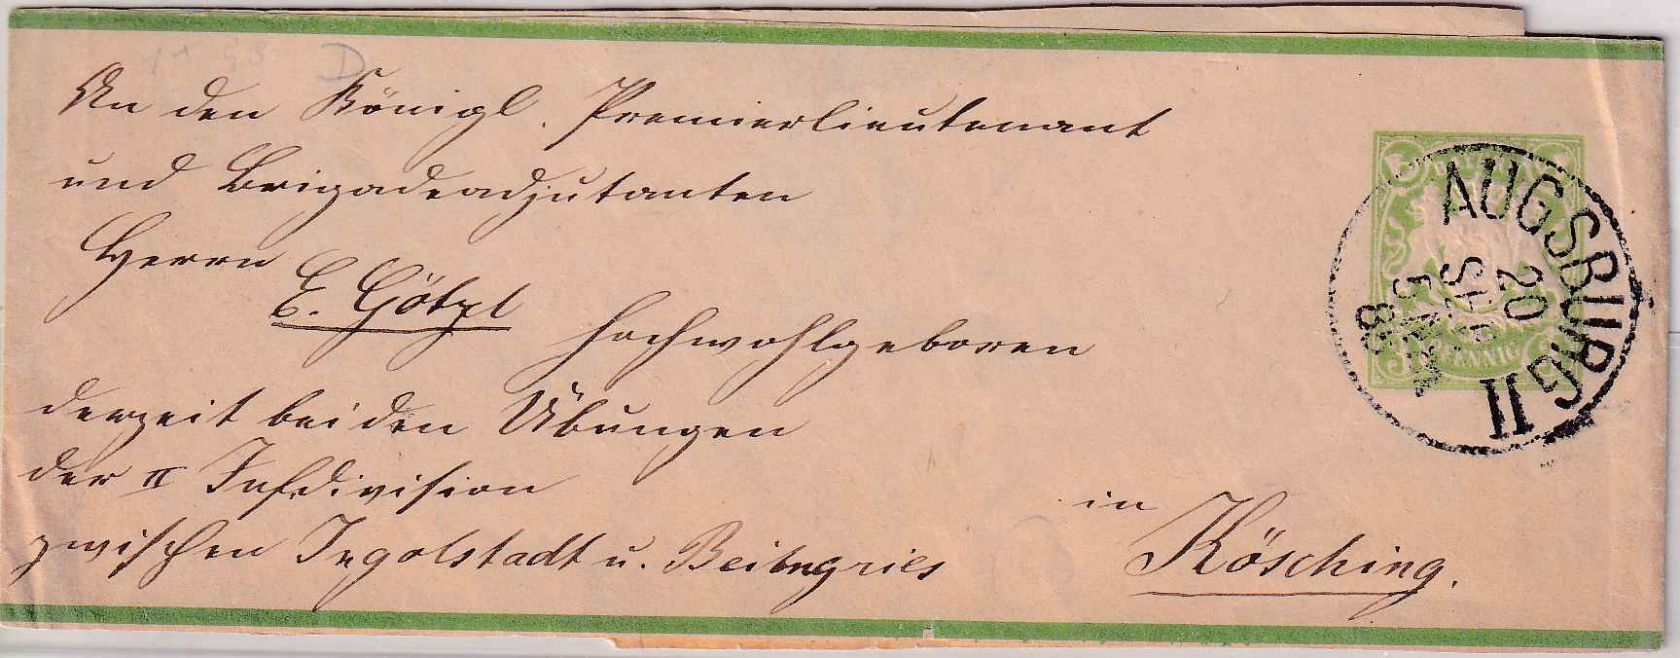 An den Königl. Premierlieutenant
und Brigadeadjutanten
Herrn
E. Götzl
Hochwohlgeboren
derzeit bei den Übungen
der II Infdivision
zwischen Ingolstadt u. Beilngries
in
Kösching.
AUGSBURG II
20
SEP
5 NM
PFENNIG
D